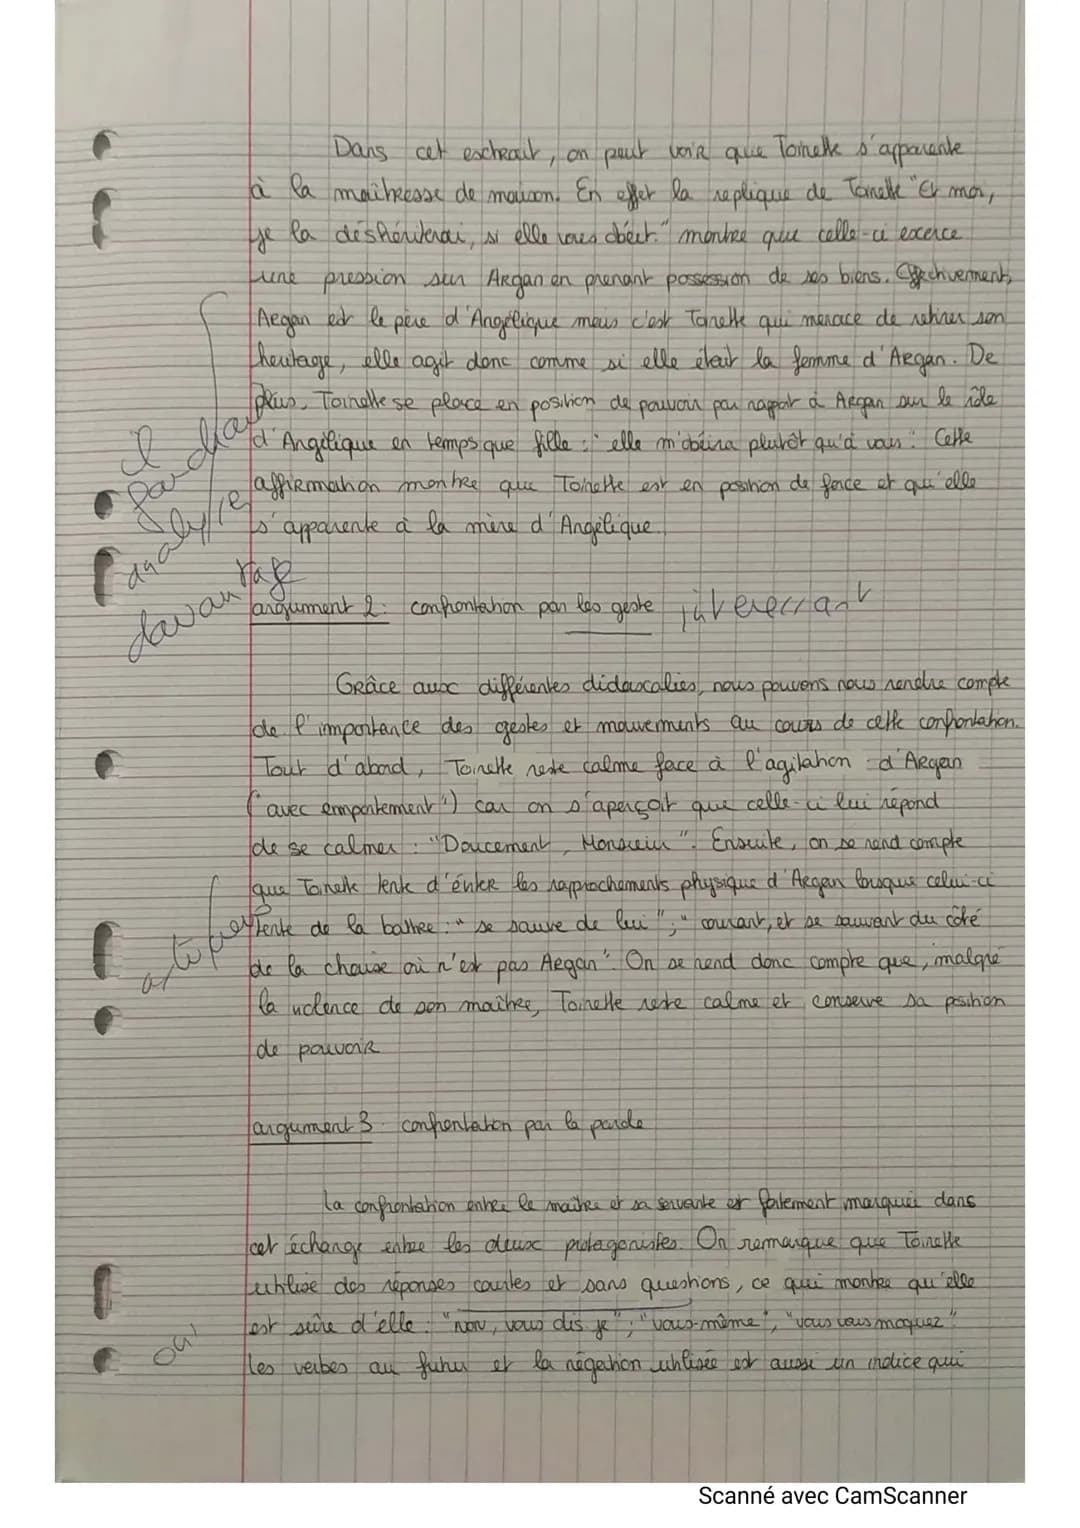 Dans cet exchrait, on peut voir que Toinette s'apparente
à la maitresse de maison. En effet la replique de Toinette "Et moi,
je la déshériterai, si elle vous obéit." montre que celle-ci excerce
une pression sur Argan en prenant possession de ses biens. Effectivement,
Argan est le père d'Angélique mais c'est Toinette qui menace de retirer son
heritage, elle agit donc comme si elle était la femme d'Argan. De
plus, Toinette se place en position de pouvoir par rapport à Argan sur le rôle
d'Angélique en temps que fille : "elle m'obéira plutôt qu'à vous". Cette
affirmation montre que Toinette est en position de force et qu'elle
s'apparente à la mère d'Angélique.
il
faudra
analyser
davantage
argument 2 : confrontation par les geste intéressant
Grâce aux différentes didascalies, nous pouvons nous rendre compte
de l'importance des gestes et mouvements au cours de cette confrontation.
Tout d'abord, Toinette reste calme face à l'agitation d'Argan
("avec emportement") car on s'aperçoit que celle-ci lui répond
de se calmer : "Doucement, Monsieur". Ensuite, on se rend compte
que Toinette tente d'éviter les rapprochements physique d'Argan lorsque celui-ci
tente de la battre : "se sauve de lui" ; "courant, et se sauvant du côté
de la chaise où n'est pas Argan". On se rend donc compte que, malgré
la violence de son maître, Toinette reste calme et conserve sa position
de pouvoir
argument 3 confrontation par la parole
la confrontation entre le maître et sa servante est fortement marquée dans
cet échange entre les deux protagonistes. On remarque que Toinette
utilise des réponses courtes et sans questions, ce qui montre qu'elle
est sûre d'elle : "non, vous dis je" ; "vous-même", "vous vous moquez"
oui
les verbes au futur et la négation utilisée est aussi un indice qui
Scanné avec CamScanner